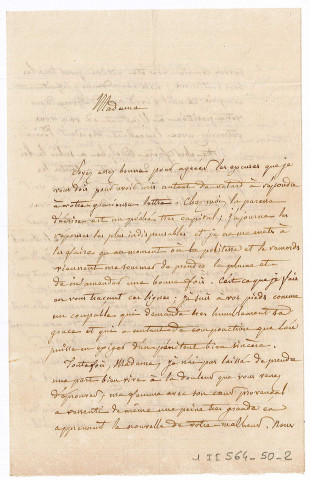 Madame
Soyez assez bonne pour agréer les excuses que je
vous dois pour avoir mis autant de retard à répondre
à votre gracieuse lettre. Chez moi, la paresse
d'écrire est un péché très capital; j'ajourne les
réponses les plus indispensables et je ne me mets à
les faire qu'au moment où la politesse et le remords
viennent me sommer de prendre la plume et
de m'amender une bonne fois. C'est ce que je fais
en vous traçant ces lignes; je suis à vos pieds comme
un coupable qui demande très humblement sa
grâce et qui a autant de componction que l'on
puisse en exiger d'un pénitent bien sincère.
Toutefois, Madame, je n'ai pas laissé de prendre
une part bien vive à la douleur que vous venez
d'éprouver; ma femme avec son cœur provençal
a ressenti de même une peine très grande en
apprenant la nouvelle de votre malheur. Nous
1 II 564-50-2